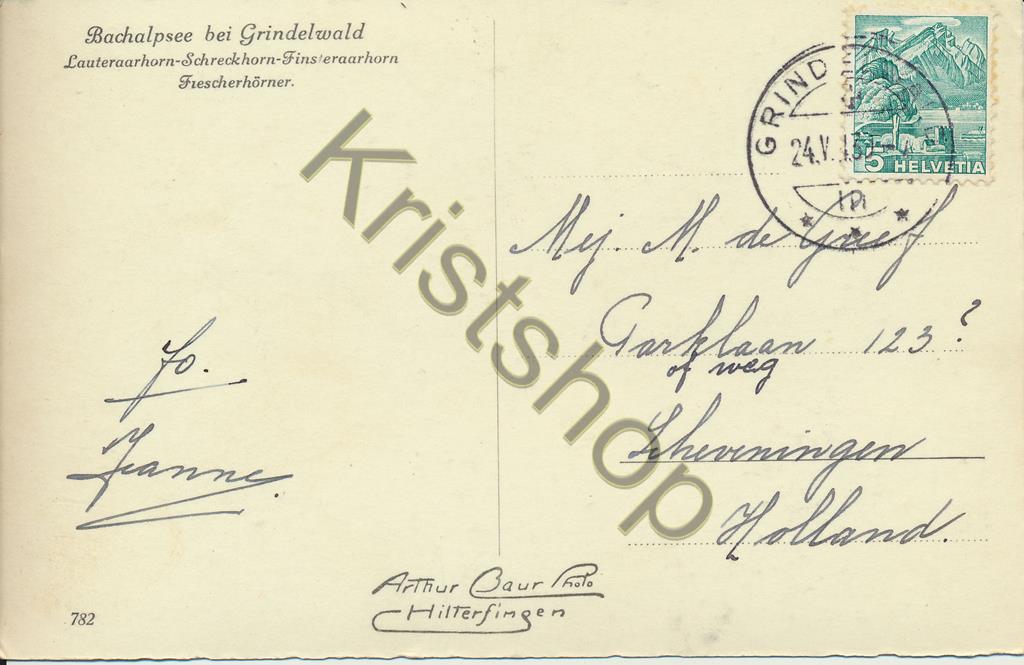 Bachalpsee bei Grindelwald
Lauteraarhorn-Schreckhorn-Finsteraarhorn
Fiescherhörner.
5 HELVETIA
24.V.
Mej. M. de Greef
Parklaan 123?
of weg
Scheveningen
Holland.
Jo.
Jeanne.
Kristshop
Arthur Baur Photo
Hilterfingen
782